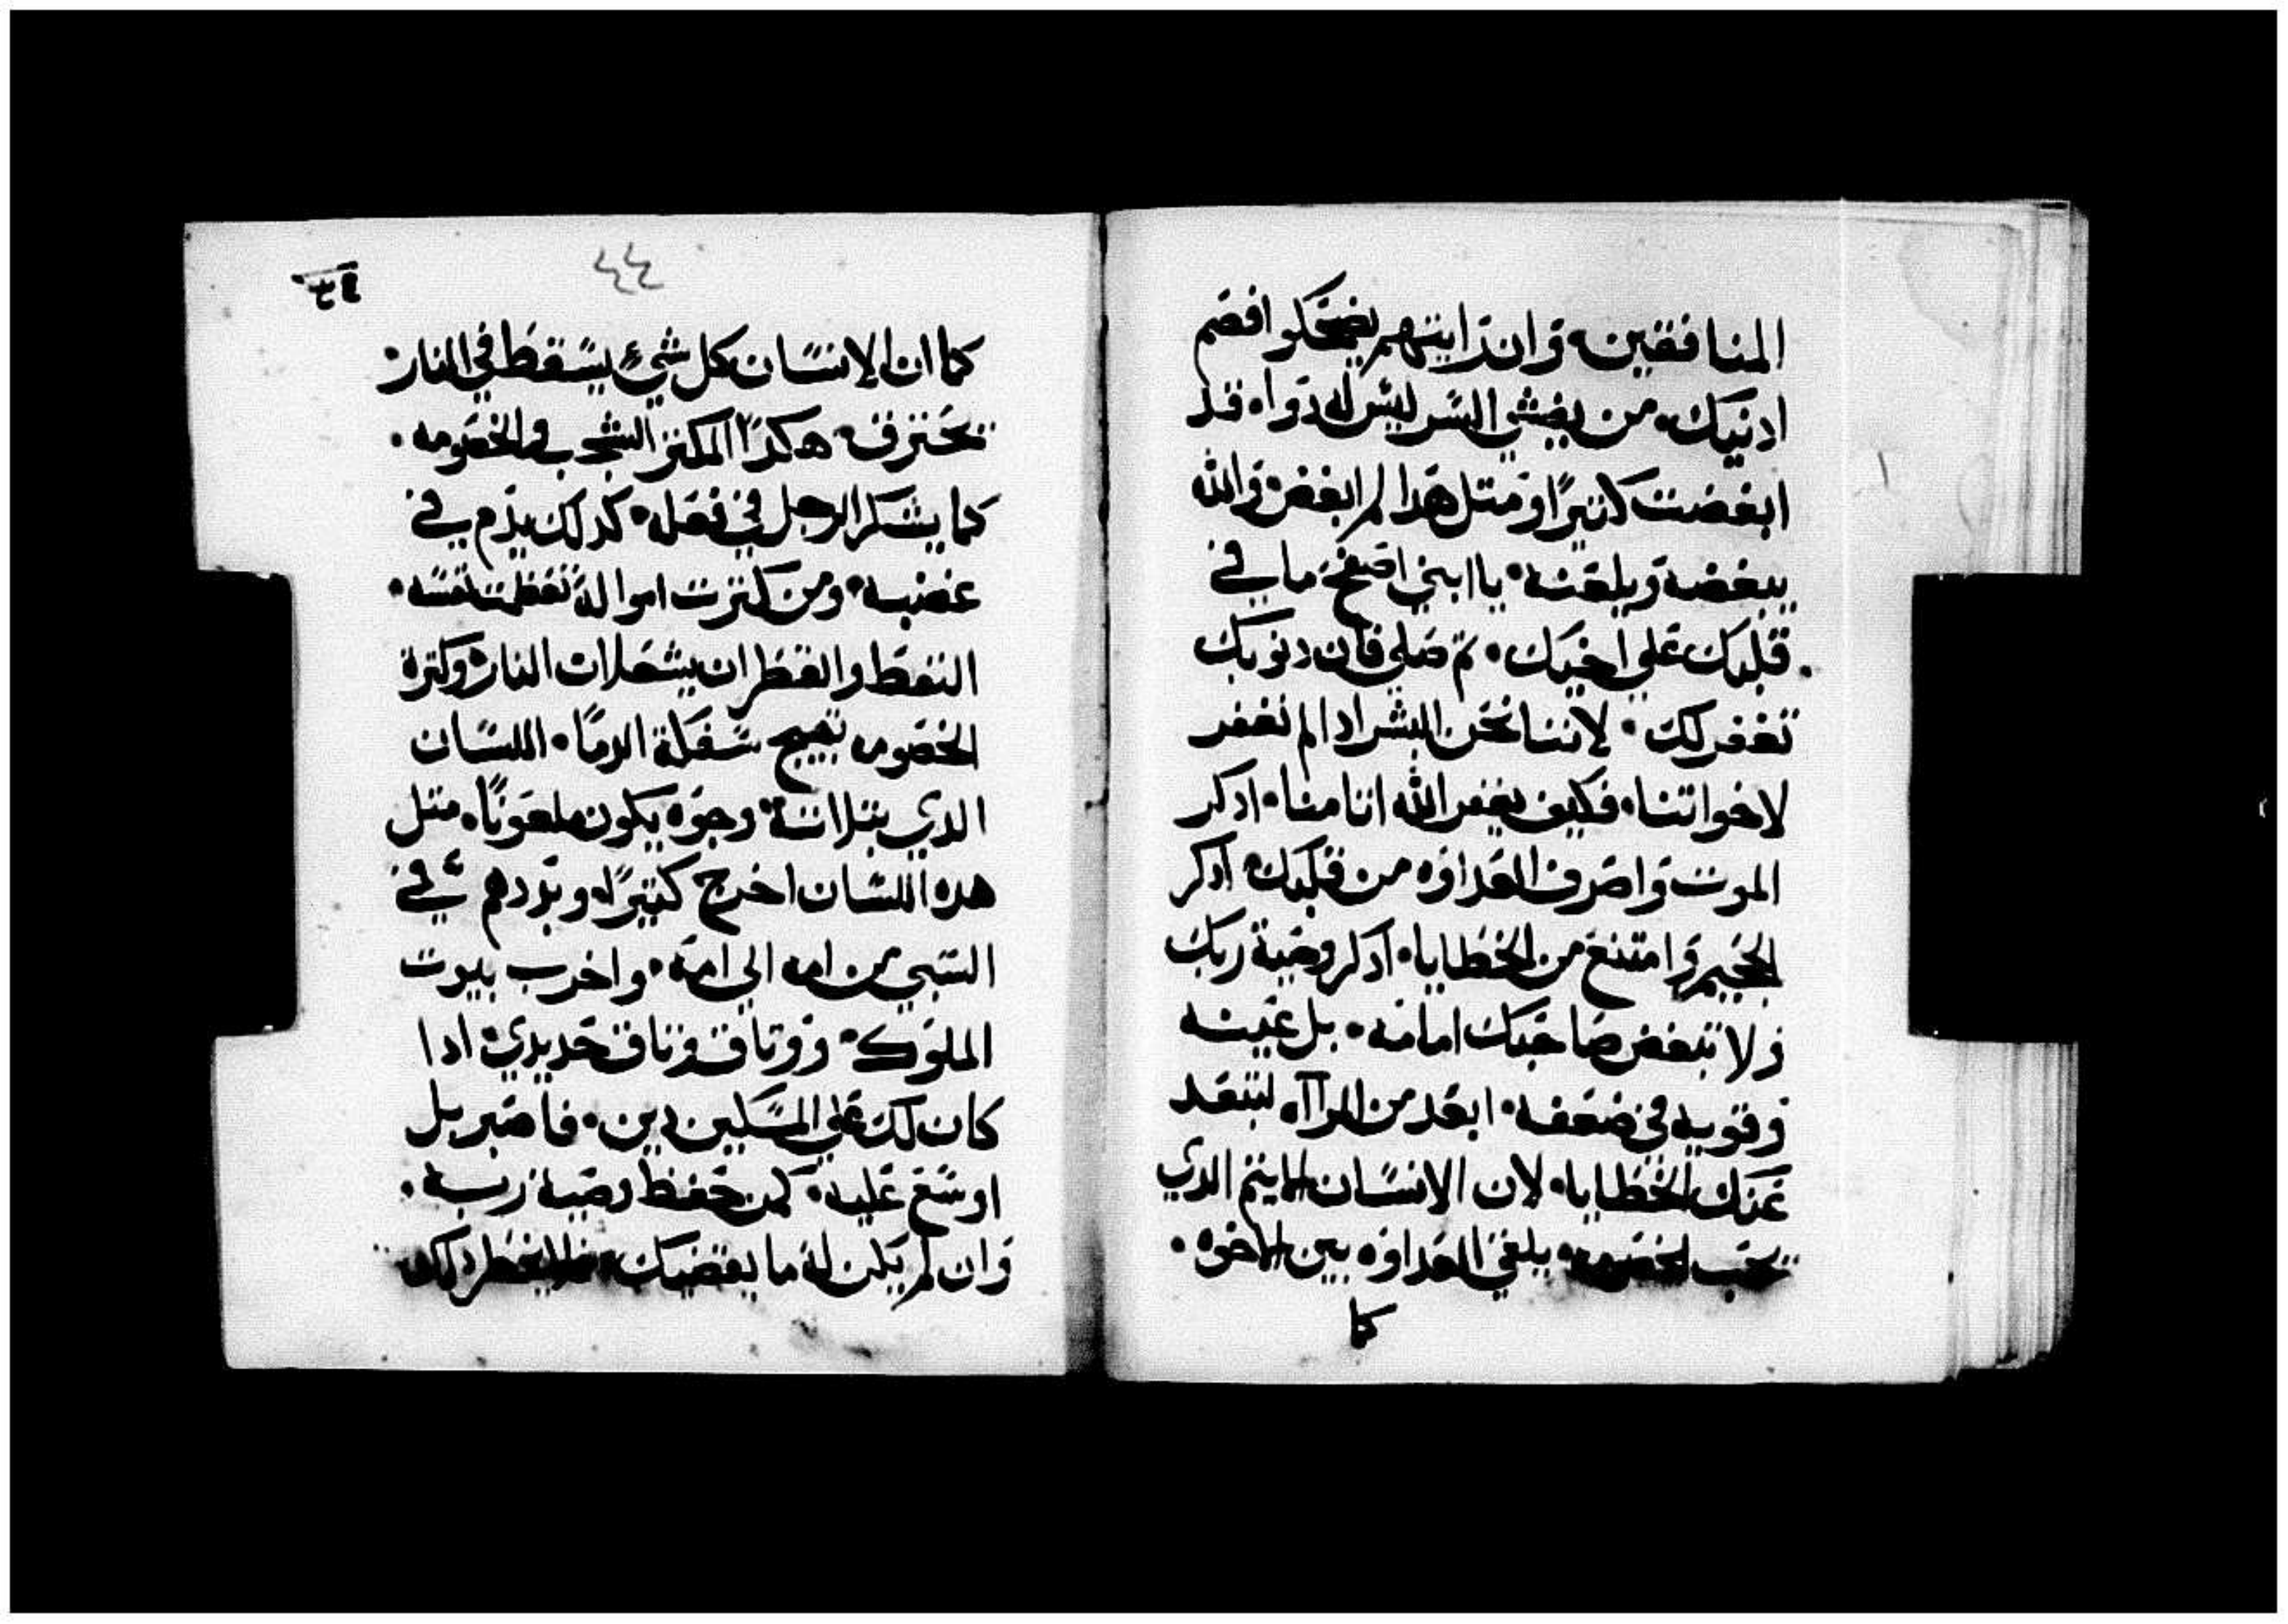 المنافقين. وان رايتهم يضحكوا افصم
ادنيك. من يفشي السر ليس له دواء. قد
ابغضت كثيرًا ومتل هدا لم ابغض. والله
يبغضه ويلعنه. يا ابني اصفح ما في
قلبك علي اخيك. تم صلي فان دنوبك
تغفر لك. لاننا نحن البشر ادا لم نغفر
لاخواتنا. فكيف يغفر الله اتامنا. ادكر
الموت واصرف العداوه من قلبك. ادكر
الجحيم وامتنع من الخطايا. ادكر وصية ربك
ولا تبغض صاحبك امامه. بل عينه
وقويه في ضعفه. ابعد من المراآه لتبعد
عنك الخطايا. لان الانسان الايتم الدي
يحب الخصومه. يلقي العداوه بين الاخوه.
كما
٤٤
كما ان الانسان كل شيء يسقط في النار
يحترق. هكدا المكتر الشجب والخصومه.
كما يشكر الرجل في فعله. كدلك يدم في
غضبه. ومن كترت امواله تعظمت نفسه.
النفط والقطران يشعلان النار. وكترة
الخصومه تهيج سفكة الدما. اللسان
الدي بتلاتة وجوه يكون ملعونًا. متل
هده اللسان اخرج كتيرًا. وبددهم في
السبي من امه الي امه. واخرب بيوت
الملوك. ووتاق وتاق حديدي. ادا
كان لك علي المسكين دين. فاصبر بل
اوسع عليه. كمن حفظ وصية ربه.
وان لم يكن له ما يعضيك.